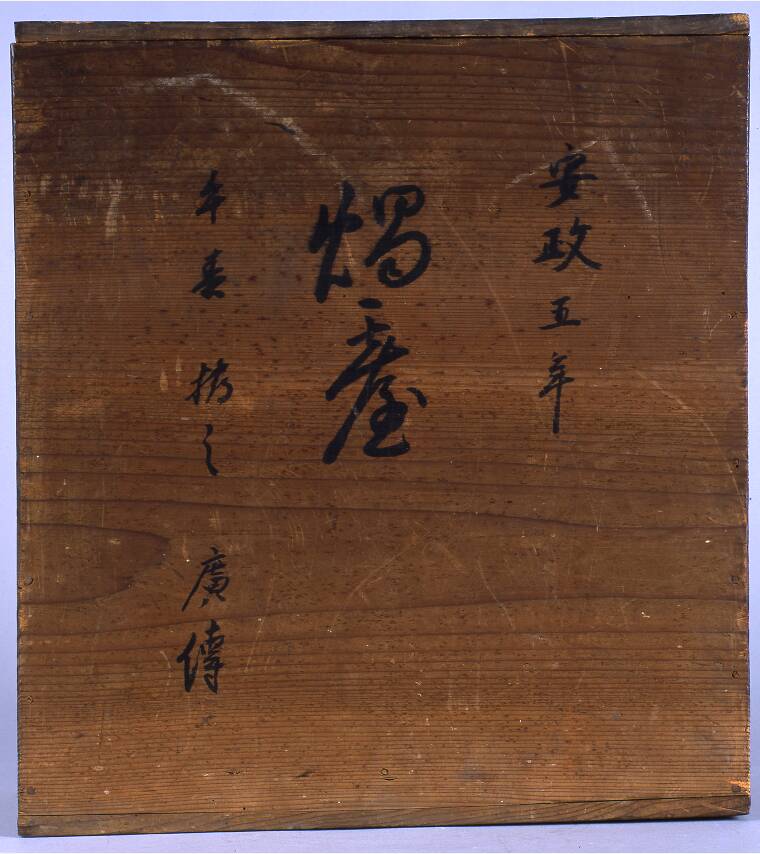 安政五年
燭臺
午春 拵之 廣傳